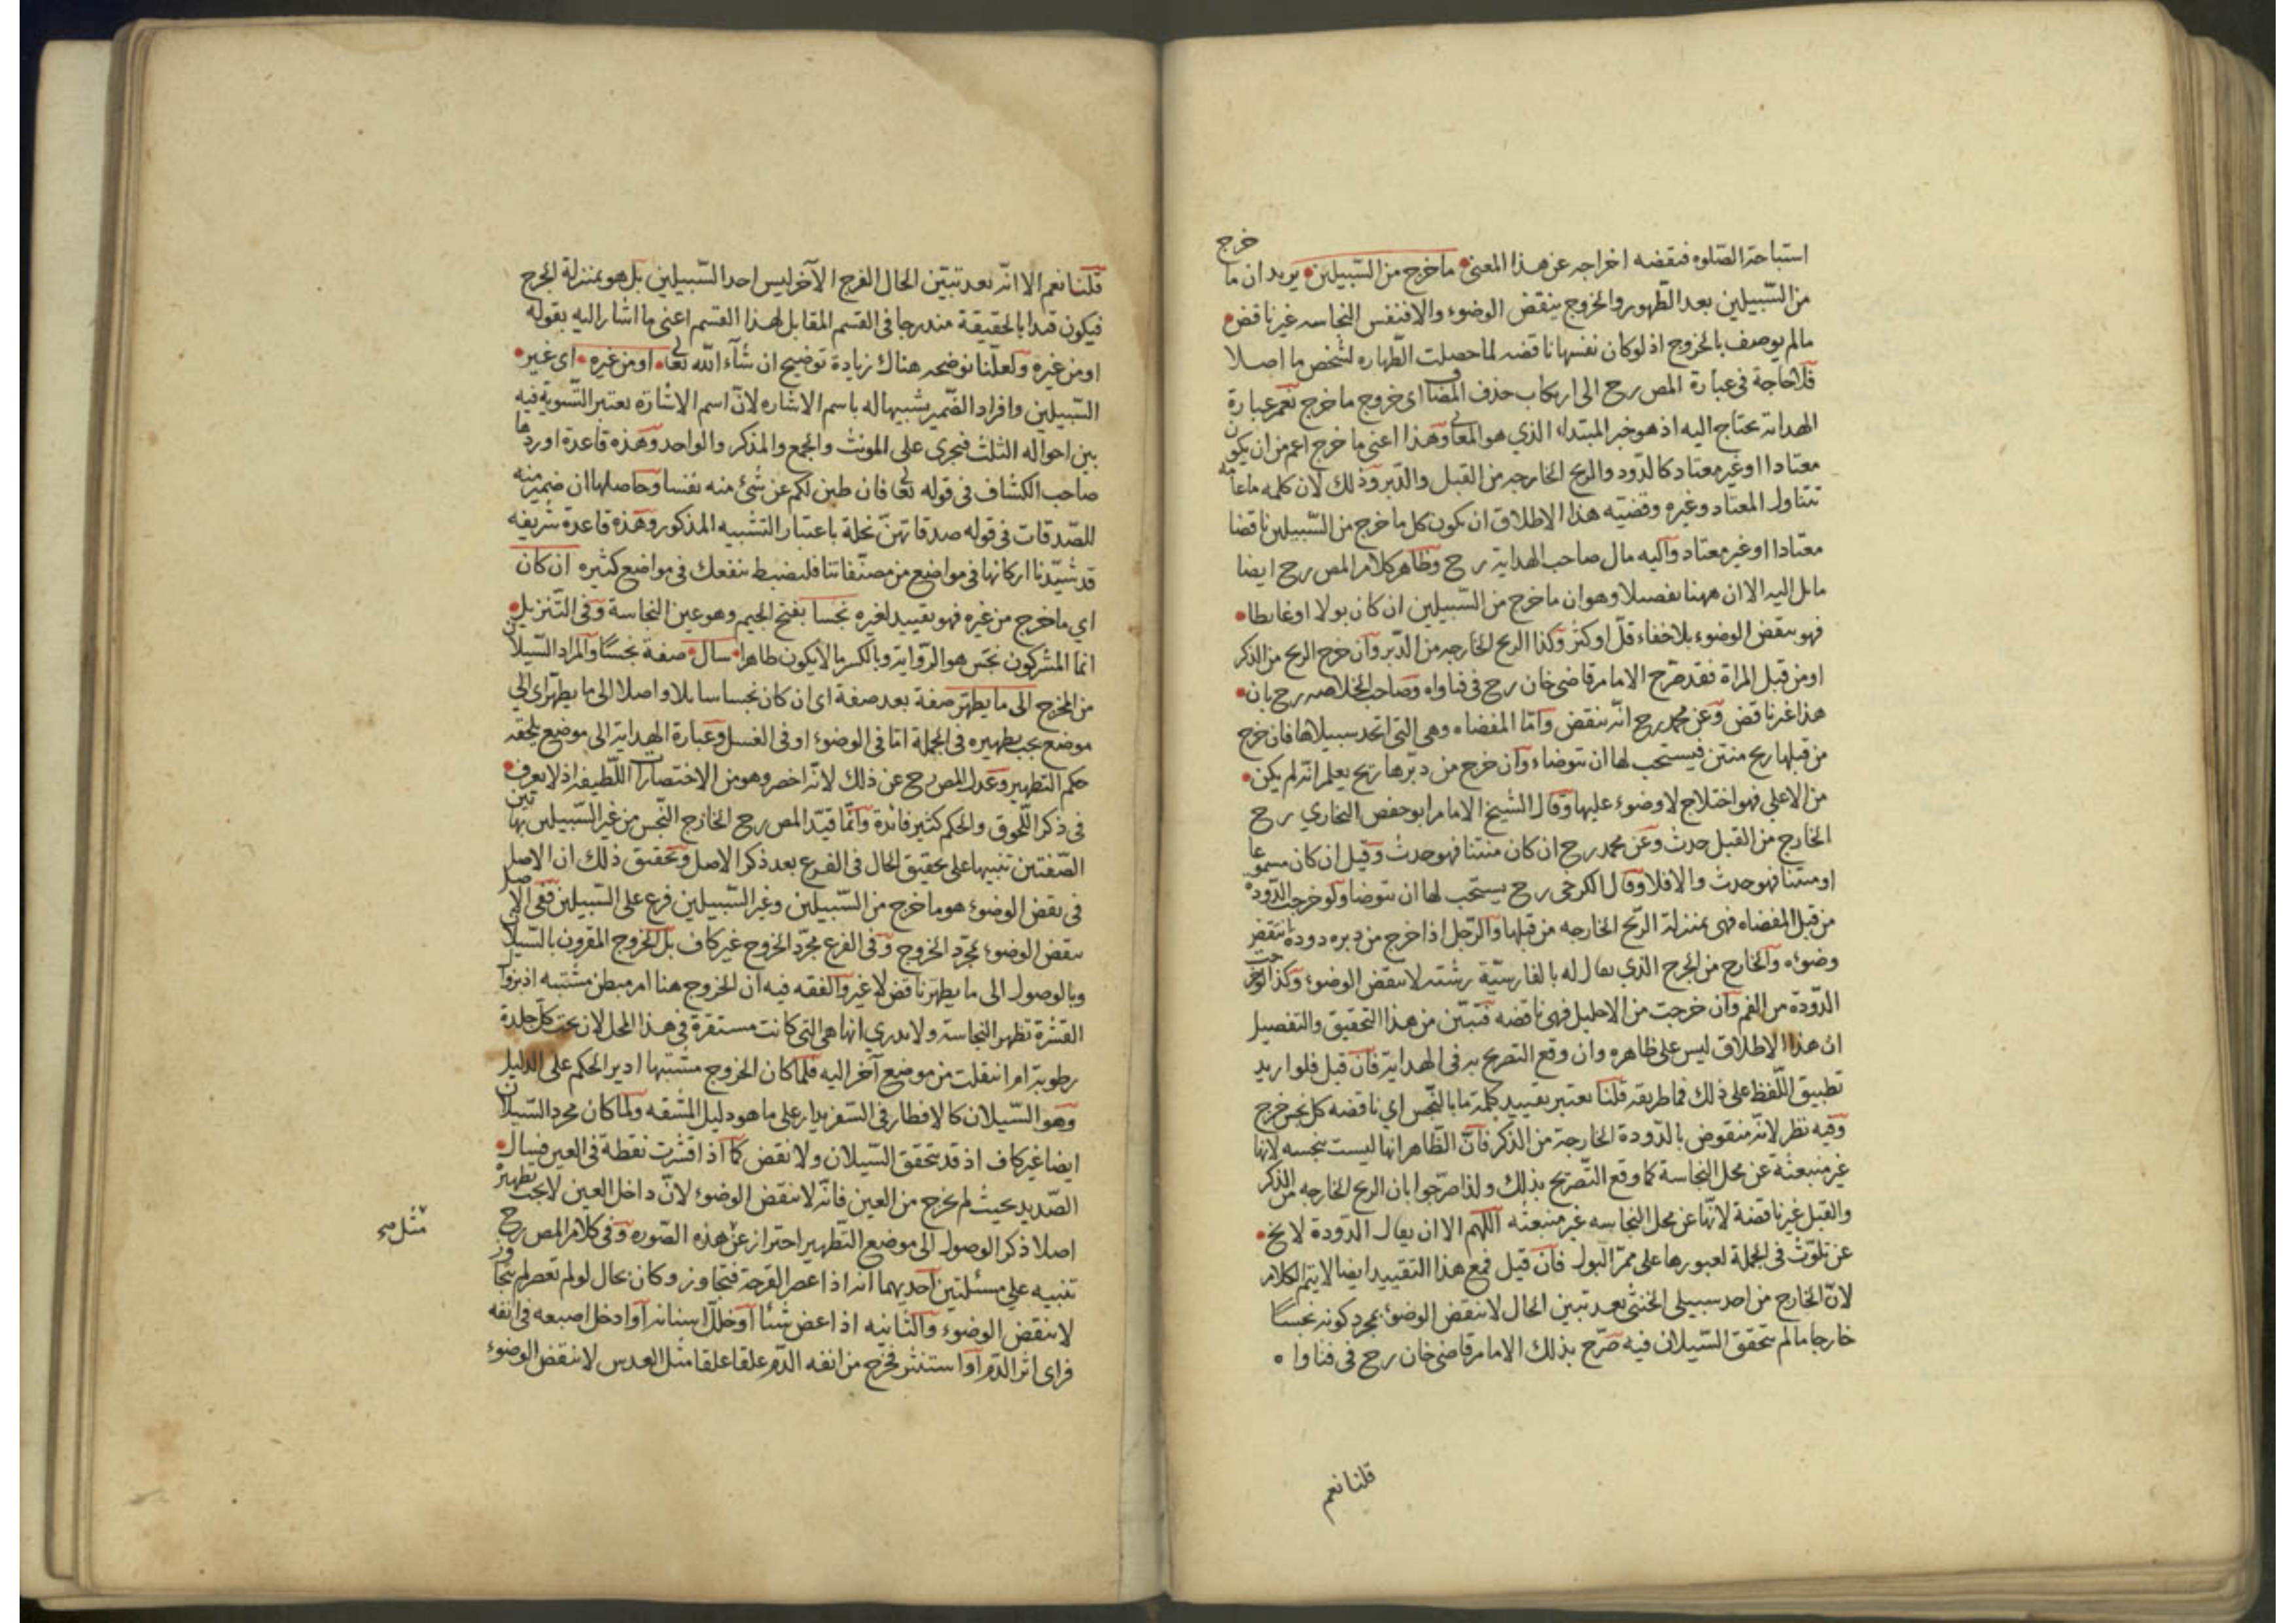 استباحة الصلوه فنقضه اخراجه عن هذا المعنى ما خرج من السّبيلين يريد ان ما خرج
من السّبيلين بعد الظّهور والخروج ينقض الوضوء والا فنفس النجاسه غير ناقض
مالم يوصف بالخروج اذ لو كان نفسها ناقضه لما حصلت الطّهاره لشخص ما اصلا
فلا حاجة فى عبارة المص رح الى ارتكاب حذف المضاف اى خروج ما خرج نعم عبارة
الهداية تحتاج اليه اذ هو خبر المبتداء الذي هو المعانى وهذا اعنى ما خرج اعم من ان يكون
معتادا او غير معتاد كالدّود والريح الخارجه من القبل والدّبر وذلك لان كلمه ما عامه
تتناول المعتاد وغيره وقضيه هذا الاطلاق ان يكون كل ما خرج من السّبيلين ناقضا
معتادا او غير معتاد وآليه مال صاحب الهداية رح وظاهر كلام المص رح ايضا
مائل اليه الا ان ههنا تفصيلا وهو ان ما خرج من السّبيلين ان كان بولا او غايطا
فهو ينقض الوضوء بلا خفاء قلّ او كثر وكذا الريح الخارجه من الدّبر وآن خرج الريح من الذكر
او من قبل المراة فقد صرح الامام قاضى خان رح فى فتاواه وصاحب الخلاصه رح بان
هذا غير ناقض وعن محمد رح انّه ينقض وآمّا المفضاه وهى التى اتحد سبيلاها فان خرج
من قبلها ريح منتن فيستحب لها ان تتوضاء وآن خرج من دبرها ريح يعلم انه لم يكن
من الاعلى فهو اختلاج لا وضوء عليها وقال الشيخ الامام ابو حفص البخاري رح
الخارج من القبل حدث وعن محمد رح ان كان منتنا فهو حدث وقيل ان كان مسموعا
او منتنا فهو حدث والا فلا وقال الكرخى رح يستحب لها ان تتوضا ولو خرجت الدّودة
من قبل المفضاه فهى بمنزلة الرّيح الخارجه من قبلها والرّجل اذا خرج من دبره دودة انتقض
وضوءه والخارج من الجرح الذي يقال له بالفارسيّة رشته لا ينقض الوضوء وكذا لو خرجت
الدّودة من الفم وآن خرجت من الاحليل فهى ناقضه فتبيّن من هذا التحقيق والتفصيل
ان هذا الاطلاق ليس على ظاهره وان وقع التصريح به فى الهداية فان قيل فلو اريد
تطبيق اللّفظ على ذلك فما طريقه قلنا يعتبر تقييد كلمة ما بالنّجس اي ناقضه كل نجس خرج
وفيه نظر لانّه منقوض بالدّودة الخارجة من الذكر فانّ الظّاهر انها ليست بنجسه لانها
غير منبعثة عن محل النجاسة كما وقع التّصريح بذلك ولذا صرّحوا بان الريح الخارجه من الذكر
والقبل غير ناقضة لانّها عن محل النجاسه غير منبعثه اللّهم الا ان يقال الدّودة لا يخ
عن تلوّث فى الجملة لعبورها على ممرّ البول فان قيل فمع هذا التقييد ايضا لا يتم الكلام
لانّ الخارج من احد سبيلى الخنثى بعد تبين الحال لا ينقض الوضوء بمجرد كونه نجسًا
خارجا مالم يتحقق السّيلان فيه صرّح بذلك الامام قاضى خان رح فى فتاوا ه
قلنا نعم
قلنا نعم الا انّه بعد تبيّن الحال الفرج الآخر ليس احد السّبيلين بل هو بمنزلة الجرح
فيكون قيدا بالحقيقة مندرجا فى القسم المقابل لهذا القسم اعنى ما اشار اليه بقوله
او من غيره ولعلّنا نوضحه هناك زيادة توضيح ان شآء اللّه تعالى او من غيره اى غير
السّبيلين وافراد الضّمير تشبيها له باسم الاشاره لانّ اسم الاشارة يعتبر التّسوية فيه
بين احواله الثلث فيجرى على المونث والجمع والمذكر والواحد وهذه قاعدة اوردها
صاحب الكشاف فى قوله تعالى فان طبن لكم عن شئ منه نفسا وحاصلها ان ضمير منه
للصّدقات فى قوله صدقاتهنّ نحلة باعتبار التشبيه المذكور وهذه قاعدة شريفه
قد شيّدنا اركانها فى مواضيع من مصنّفاتنا فليضبط ينفعك فى مواضع كثيره ان كان
اي ما خرج من غيره فهو تقييد لغيره نجسا بفتح الجيم وهو عين النجاسة وفى التّنزيل
انما المشركون نجس هو الرّواية وبالكسر ما لا يكون طاهرا سال صفة نجسًا والمراد السّيلان
من المخرج الى ما يطهر صفة بعد صفة اى ان كان نجسا سايلا واصلا الى ما يطهّر اى الى
موضع يجب تطهيره فى الجملة امّا فى الوضوء او فى الغسل وعبارة الهداية الى موضع يلحقه
حكم التطهير وعدل المص رح عن ذلك لانّه اخصر وهو من الاختصارات اللّطيفه اذ لا يعرف
فى ذكر اللّحوق والحكم كثير فائدة وآنّما قيّد المص رح الخارج النّجس من غير السّبيلين بهاتين
الصّفتين تنبيها على تحقيق الحال فى الفرع بعد ذكر الاصل وتحقيق ذلك ان الاصل
فى نقض الوضوء هو ما خرج من السّبيلين وغير السّبيلين فرع على السّبيلين ففى الاصل
ينقض الوضوء بمجرّد الخروج وفى الفرع مجرّد الخروج غير كاف بل الخروج المقرون بالسّيلان
وبالوصول الى ما يطهر ناقض لا غير والفقه فيه ان الخروج هنا امر مبطن مشتبه اذ بزوال
القشرة تظهر النجاسة ولا يدري انها هى التى كانت مستقرة فى هذا المحل لان تحت كل جلدة
رطوبة ام انتقلت من موضع آخر اليه فلما كان الخروج مشتبها ادير الحكم على الدليل
وهو السّيلان كالافطار فى السّفر يدار على ما هو دليل المشقه ولما كان مجرد السّيلان
ايضا غير كاف اذ قد يتحقق السّيلان ولا نقض كما اذا قشرت نقطة فى العين فسال
الصّديد بحيث لم يخرج من العين فانّه لا ينقض الوضوء لانّ داخل العين لا يجب تطهيره
اصلا ذكر الوصول الى موضع التطهير احتراز عن هذه الصّوره وفى كلام المص رح
مثل صح
تنبيه على مسئلتين احديهما انه اذا عصر القرحة فتجاوز وكان بحال لو لم تعصر لم يتجاوز
لا ينقض الوضوء والثّانيه اذا عض شئا او خلّل اسنانه او ادخل اصبعه فى انفه
فراى اثر الدّم او استنثر فخرج من انفه الدّم علقا علقا مثل العدس لا ينقض الوضوء